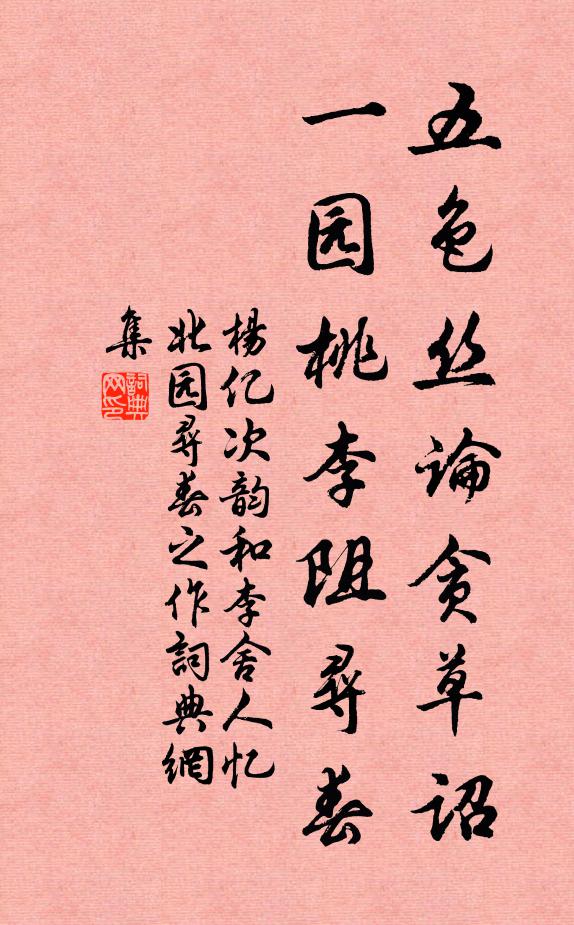 五色丝论贪草诏
一园桃李阻寻春
杨亿次韵和李舍人忆
北园寻春之作词典網
集
詞典
网印